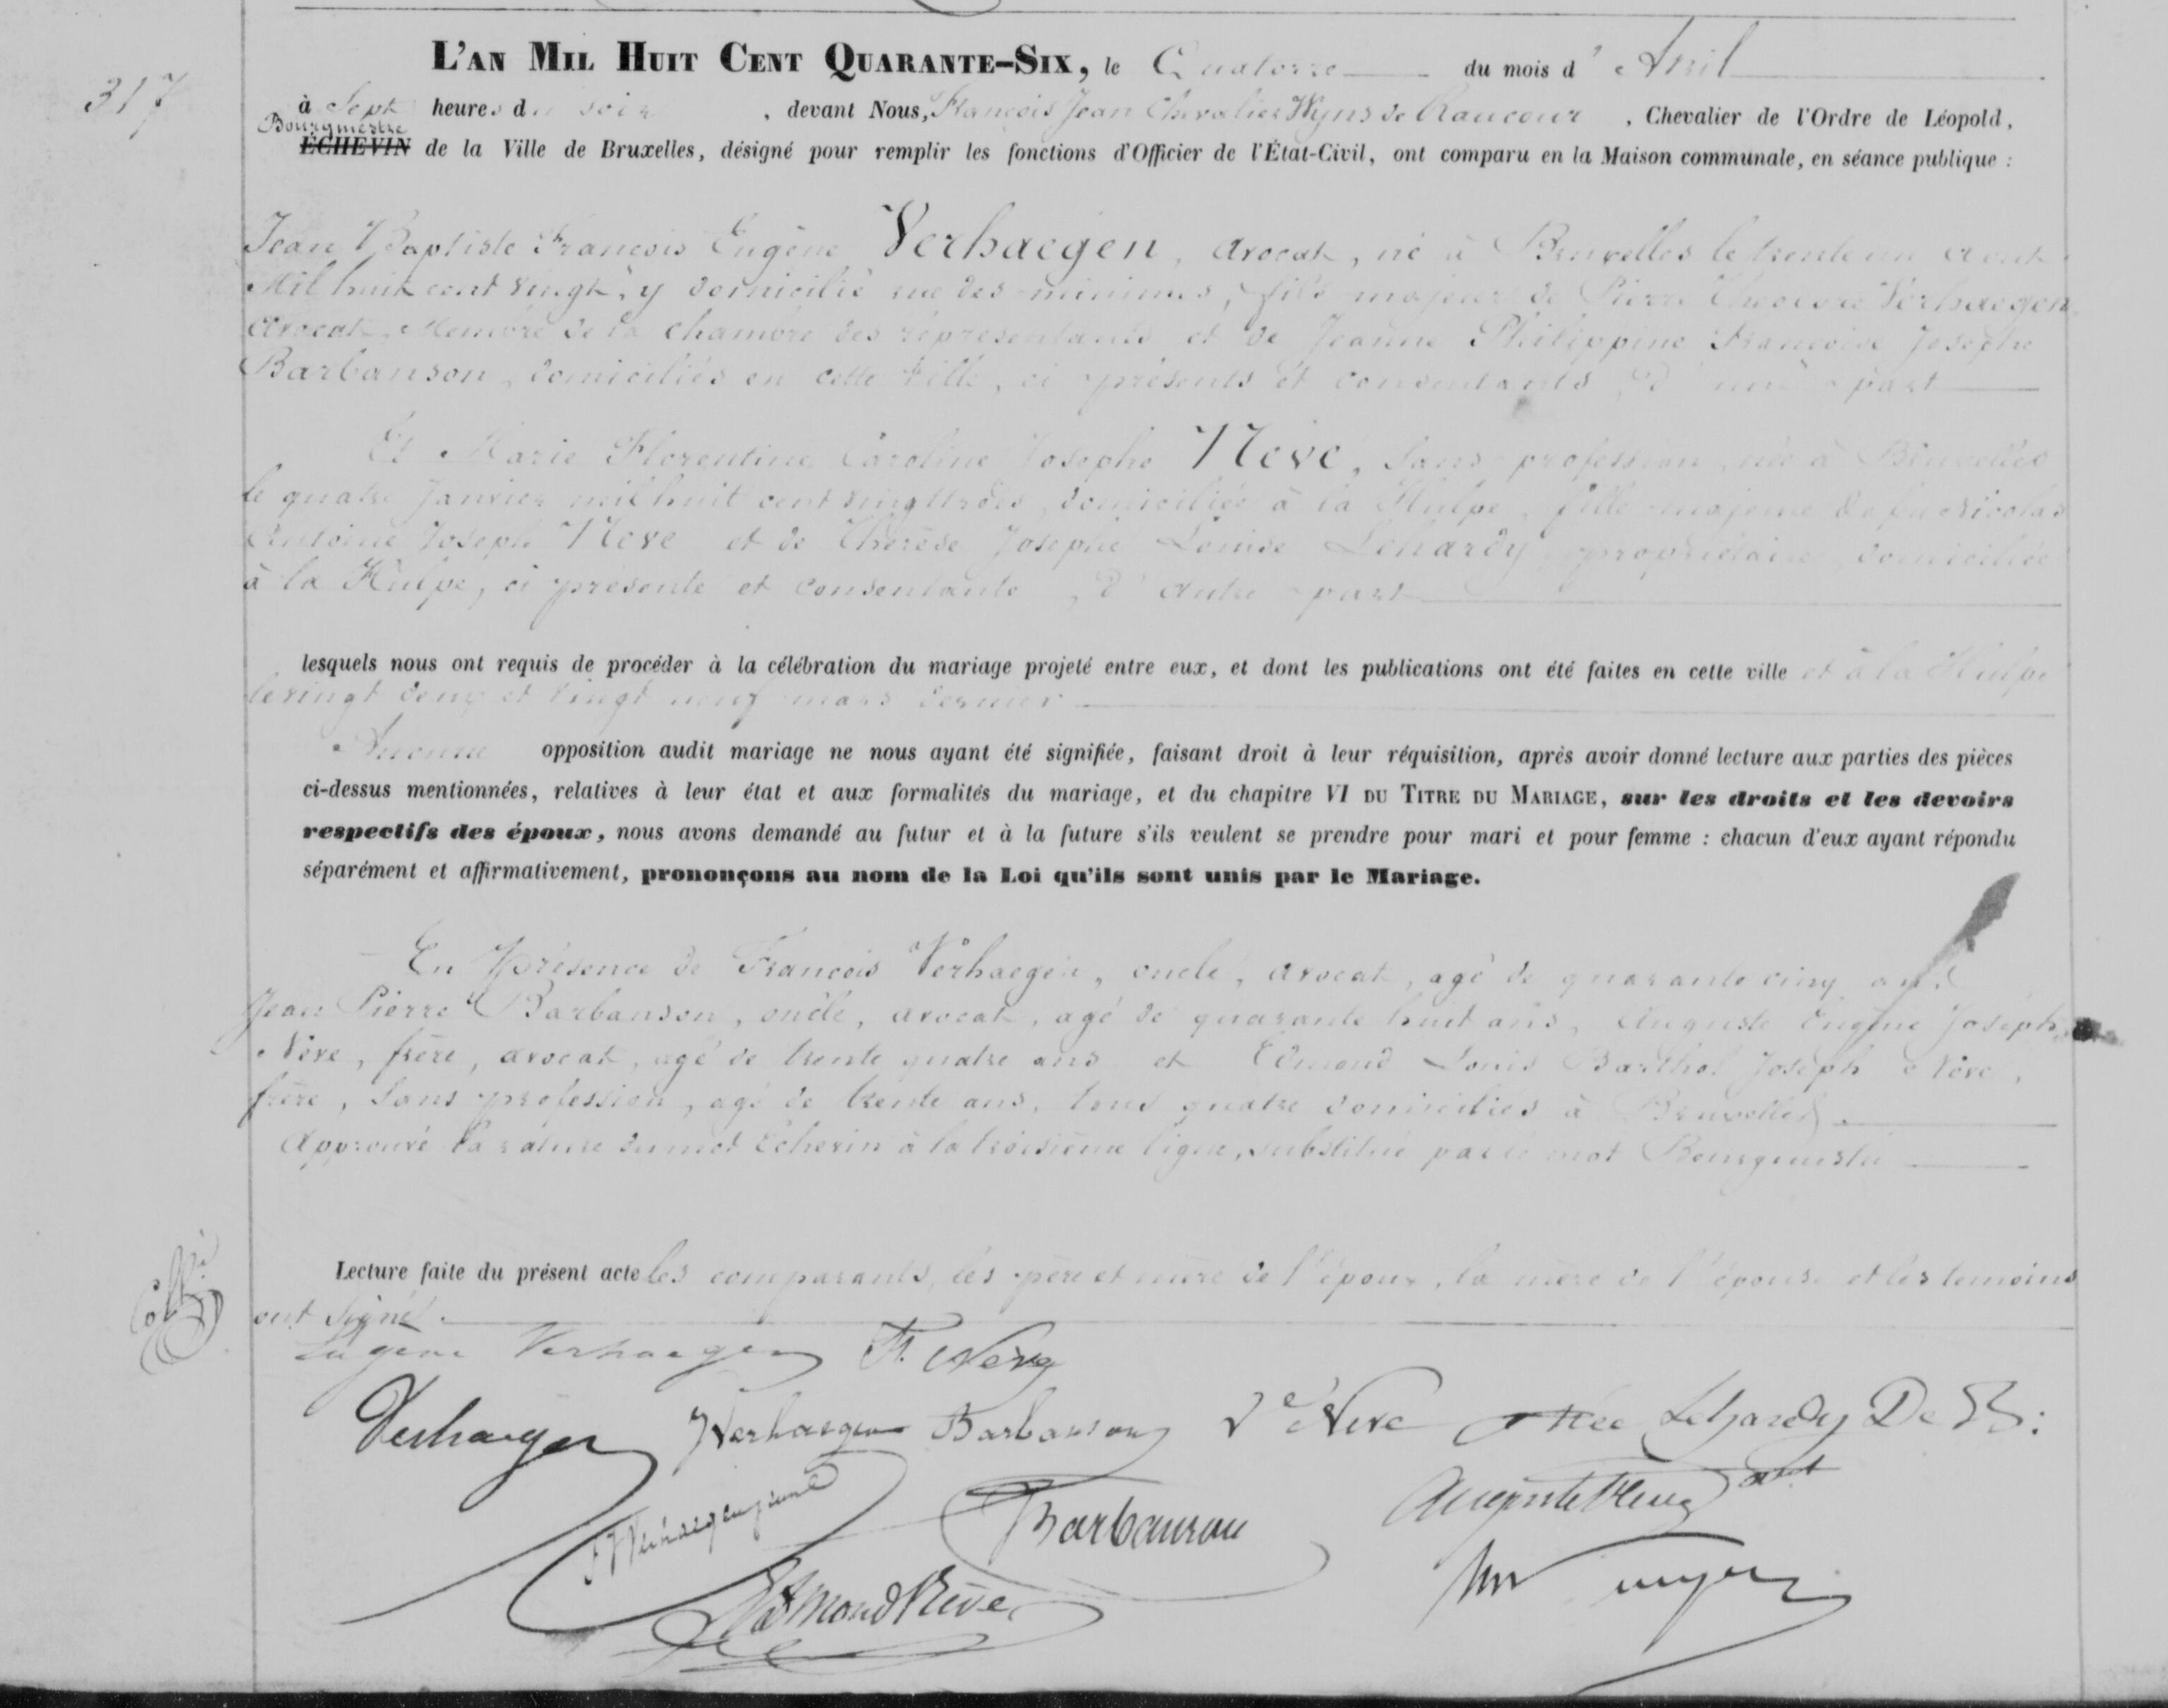 317
L'AN MIL HUIT CENT QUARANTE-SIX, le Quatorze du mois d' Avril
à Sept heures du soir, devant Nous, François Jean Chevalier Wyns de Raucour, Chevalier de l'Ordre de Léopold,
Bourgmestre
ÉCHEVIN de la Ville de Bruxelles, désigné pour remplir les fonctions d'Officier de l'État-Civil, ont comparu en la Maison communale, en séance publique :
Jean Baptiste François Eugène Verhaegen, avocat, né à Bruxelles le trente un aout
Mil huit cent vingt, y domicilié rue des minimes, fils majeur de Pierre Théodore Verhaegen,
avocat, Membre de la chambre des représentants et de Jeanne Philippine Françoise Josephe
Barbanson, domiciliés en cette ville, ci présents et consentants, d'une part
Et Marie Florentine Caroline Josephe Nève, sans profession, née à Bruxelles
le quatre Janvier mil huit cent vingt trois, domiciliée à la Hulpe, fille majeure de feu Nicolas
Antoine Joseph Nève et de Thérèse Josephe Louise Lehardy, propriétaire, domiciliée
à la Hulpe, ci présente et consentante, d'autre part
lesquels nous ont requis de procéder à la célébration du mariage projeté entre eux, et dont les publications ont été faites en cette ville et à la Hulpe
le vingt deux et vingt neuf mars dernier
Aucune opposition audit mariage ne nous ayant été signifiée, faisant droit à leur réquisition, après avoir donné lecture aux parties des pièces
ci-dessus mentionnées, relatives à leur état et aux formalités du mariage, et du chapitre VI DU TITRE DU MARIAGE, sur les droits et les devoirs
respectifs des époux, nous avons demandé au futur et à la future s'ils veulent se prendre pour mari et pour femme : chacun d'eux ayant répondu
séparément et affirmativement, prononçons au nom de la Loi qu'ils sont unis par le Mariage.
En présence de François Verhaegen, oncle, avocat, agé de quarante cinq ans
Jean Pierre Barbanson, oncle, avocat, agé de quarante huit ans, Auguste Eugène Joseph
Nève, frère, avocat, agé de trente quatre ans et Edmond Louis Barthol Joseph Nève,
frère, sans profession, agé de trente ans, tous quatre domiciliés à Bruxelles
Approuvé la rature du mot Echevin à la troisième ligne, substitué par le mot Bourgmestre
Lecture faite du présent acte les comparants, les père et mère de l'époux, la mère de l'épouse et les temoins
ont signé.
Eugène Verhaegen F. Nève
Verhaegen Verhaegen Barbanson Ve Nève née Lehardy De B:
Verhaegen jeune Barbanson Auguste Nève avt
Edmond Nève